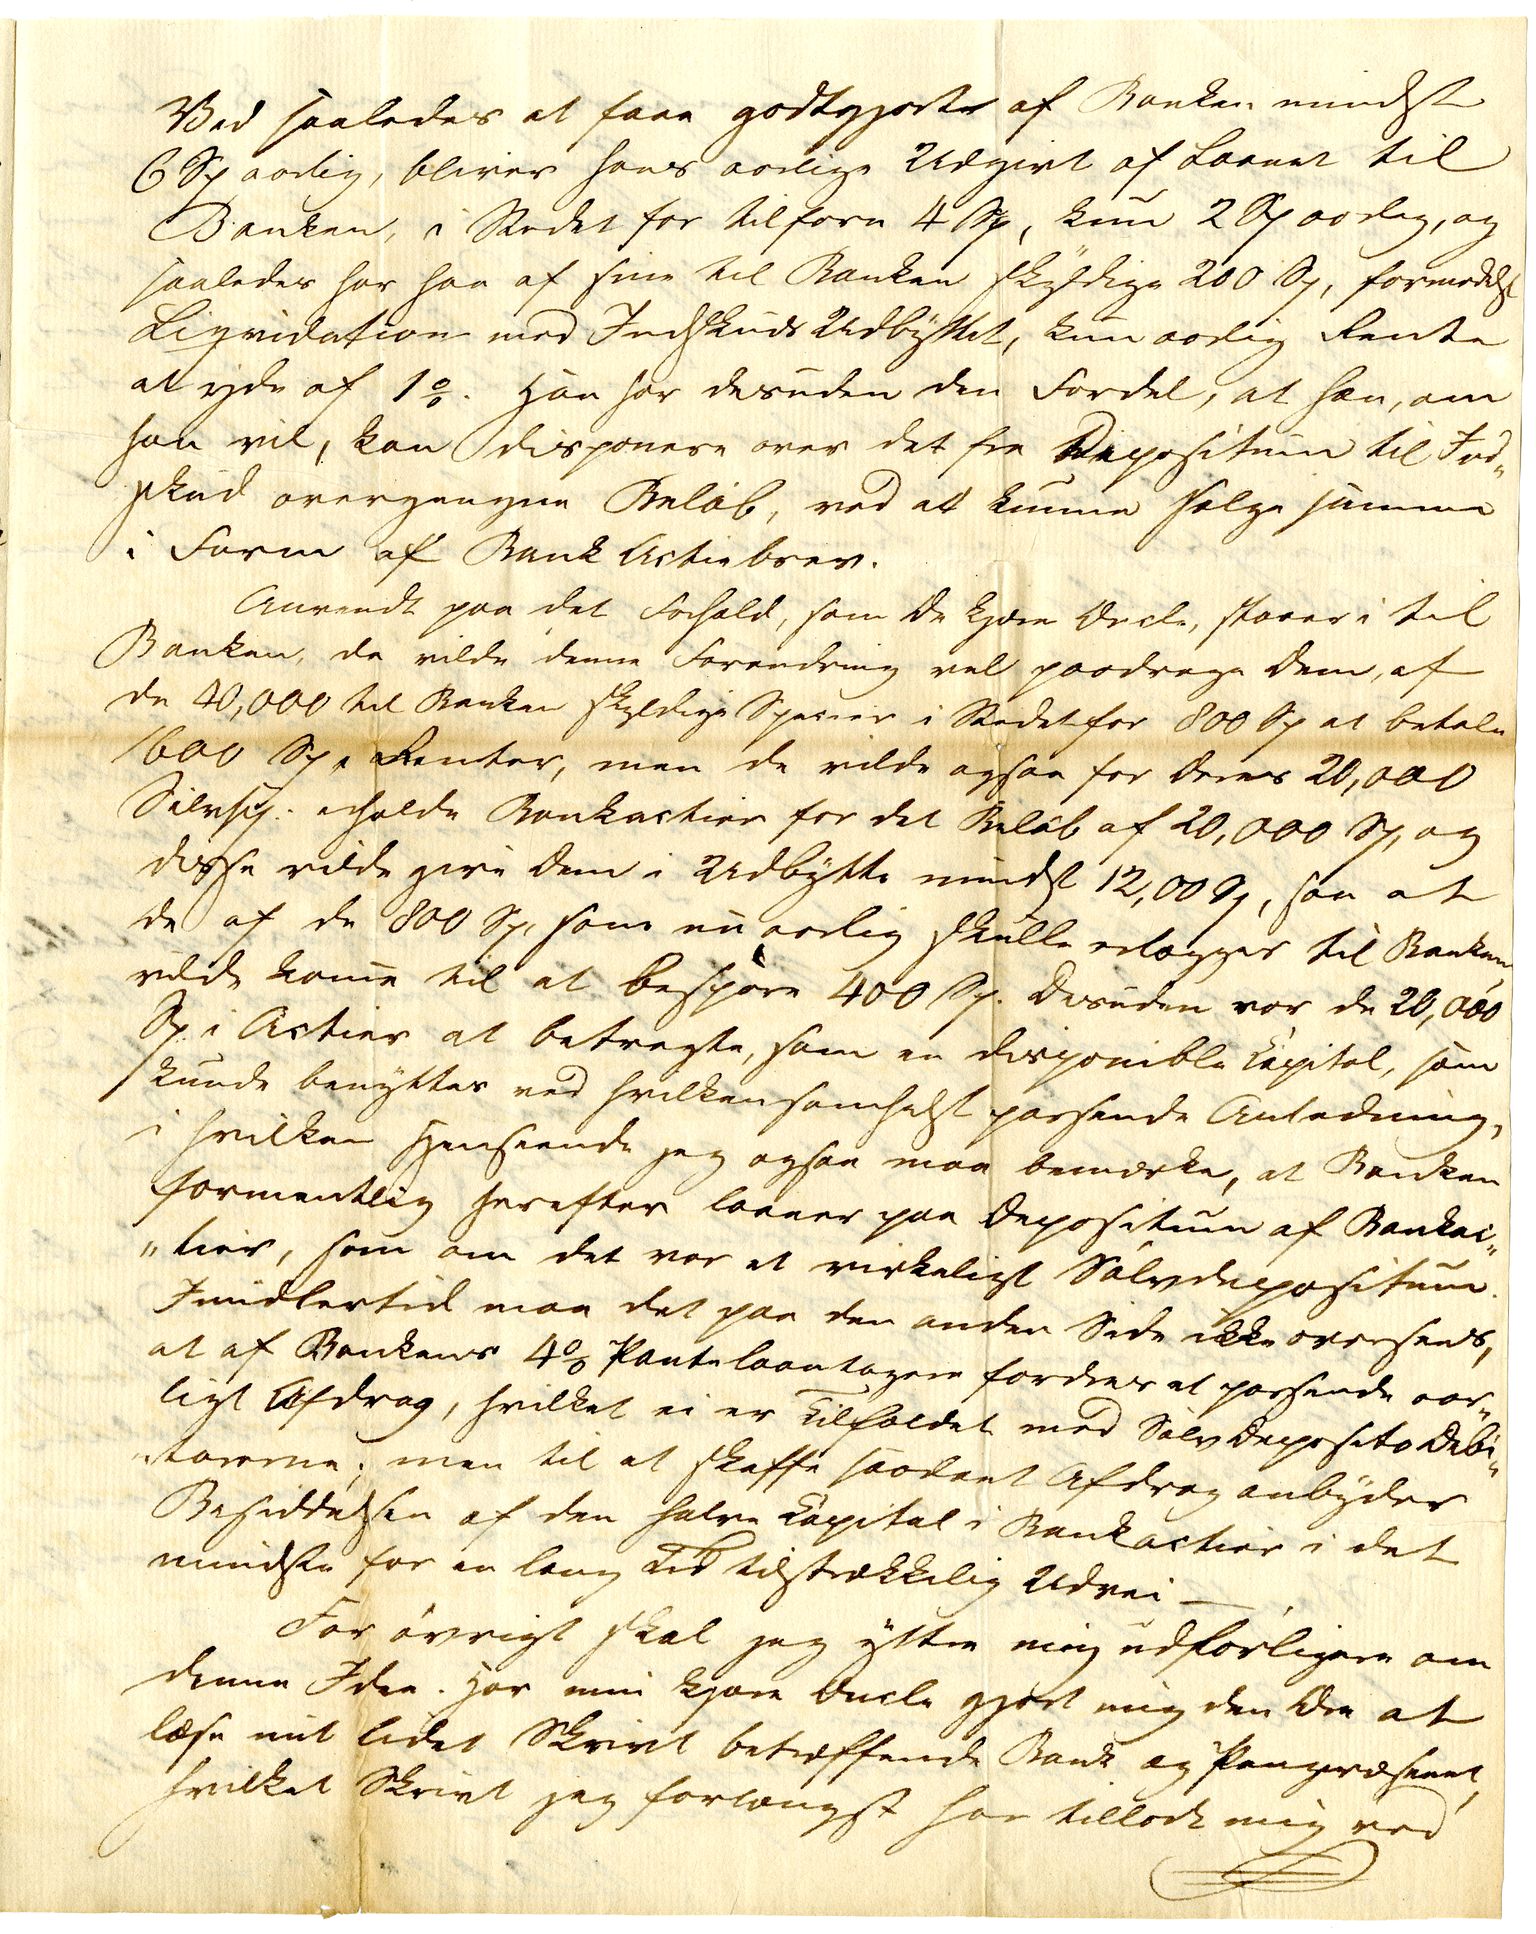 Ved saaledes at faae godtgjorte af Banken mindst
6 Sp aarlig, bliver hans aarlige Udgivt af Laanet til
Banken, i Stedet for tilforn 4 Sp, kun 2 Sp aarlig, og
saaledes har han af sine til Banken skyldige 200 Sp, formedelst
Liqvidation med Indskuds Udbyttet, kun aarlig Rente
at yde af 1 %. Han har desuden den Fordel, at han, om
han vil, kan disponere over det fra Depositum til Ind„
skud overgangne Beløb, ved at kunne sælge samme
i Form af Bank Actiebrev.
Anvendt paa det Forhold, som De kjære Oncle, staaer i til
Banken, da vilde denne Forandring vel paadrage Dem, af
de 40,000 til Banken skyldige Specier i Stedet for 800 Sp at betale
1600 Sp, Renter, men de vilde ogsaa for Deres 20,000
Sølvsp. erholde Bankactier for det Beløb af 20,000 Sp, og
disse vilde give Dem i Udbytte mindst 12,00 Sp, saa at
de af de 800 Sp, som nu aarlig skulle erlægges til Banken
vilde komme til at bespare 400 Sp. Desuden var de 20,000
Sp. i Actier at betragte, som en disponible Capital, som
kunde benyttes ved hvilkensomhelst passende Anledning,
i hvilken Henseende jeg ogsaa maa bemærke, at Banken
formentlig herefter laaner paa Depositum af Bankac„
„tier, som om det var et virkeligt Sølvdepositum.
Imidlertid maa det paa den anden Side ikke oversees,
at af Bankens 4 % Pantelaantagere fordres et passende aar„
ligt Afdrag, hvilket ei er Tilfældet med Sølv Deposito Debi„
„torerne; men til at skaffe saadant Afdrag anbyder
Besiddelsen af den halve Capital i Bankactier i det
mindste for en lang Tid tilstrækkelig Udvei —
For øvrigt skal jeg yttre mig udførligere om
denne Idee. Har min kjære Oncle gjort mig den Ære at
læse mit lidet Skrivt betræffende Bank og Pengevæsenet,
hvilket Skrivt jeg forlængst har tilladt mig ved